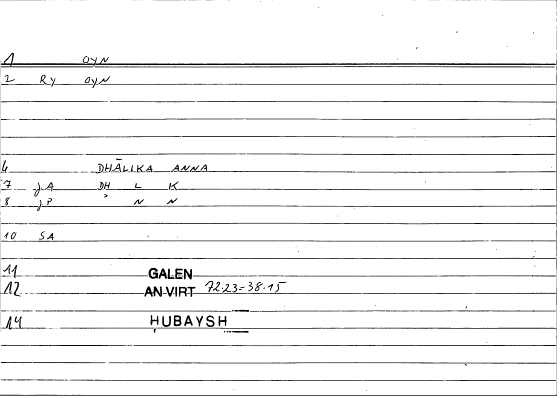 1 OYN
2 RY OYN
6 DHĀLIKA ANNA
7 JA DH L K
8 JP ' N N
10 SA
11 GALEN
12 AN.VIRT 72.23=38.15
14 ḤUBAYSH